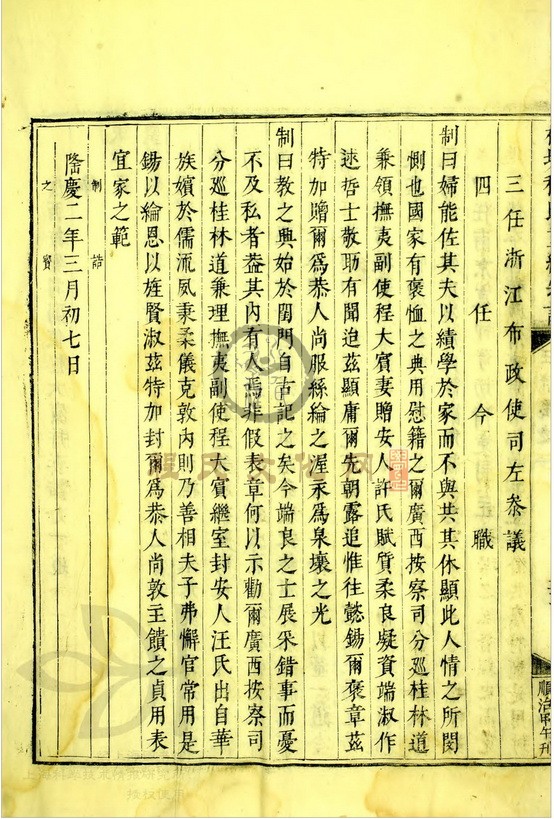 三任浙江布政使司左叅議
四任今職
制曰婦能佐其夫以績學於家而不與共其休顯此人情之所閔
惻也國家有褒恤之典用慰籍之爾廣西按察司分巡桂林道
兼領撫夷副使程大賓妻贈安人許氏賦質柔良凝資端淑作
逑哲士敬助有聞迨兹顯庸爾先朝露追惟往懿錫爾褒章兹
特加贈爾爲恭人尚服絲綸之渥永爲泉壤之光
制曰教之典始於閨門自古記之矣今端良之士展采錯事而憂
不及私者葢其内有人焉非假表章何以示勸爾廣西按察司
分巡桂林道兼理撫夷副使程大賓繼室封安人汪氏出自華
族嬪於儒流夙秉柔儀克敦内則乃善相夫子弗懈官常用是
錫以綸恩以旌賢淑兹特加封爾爲恭人尚敦主饋之貞用表
宜家之範
隆慶二年三月初七日
制誥
之寳
順治甲午刊